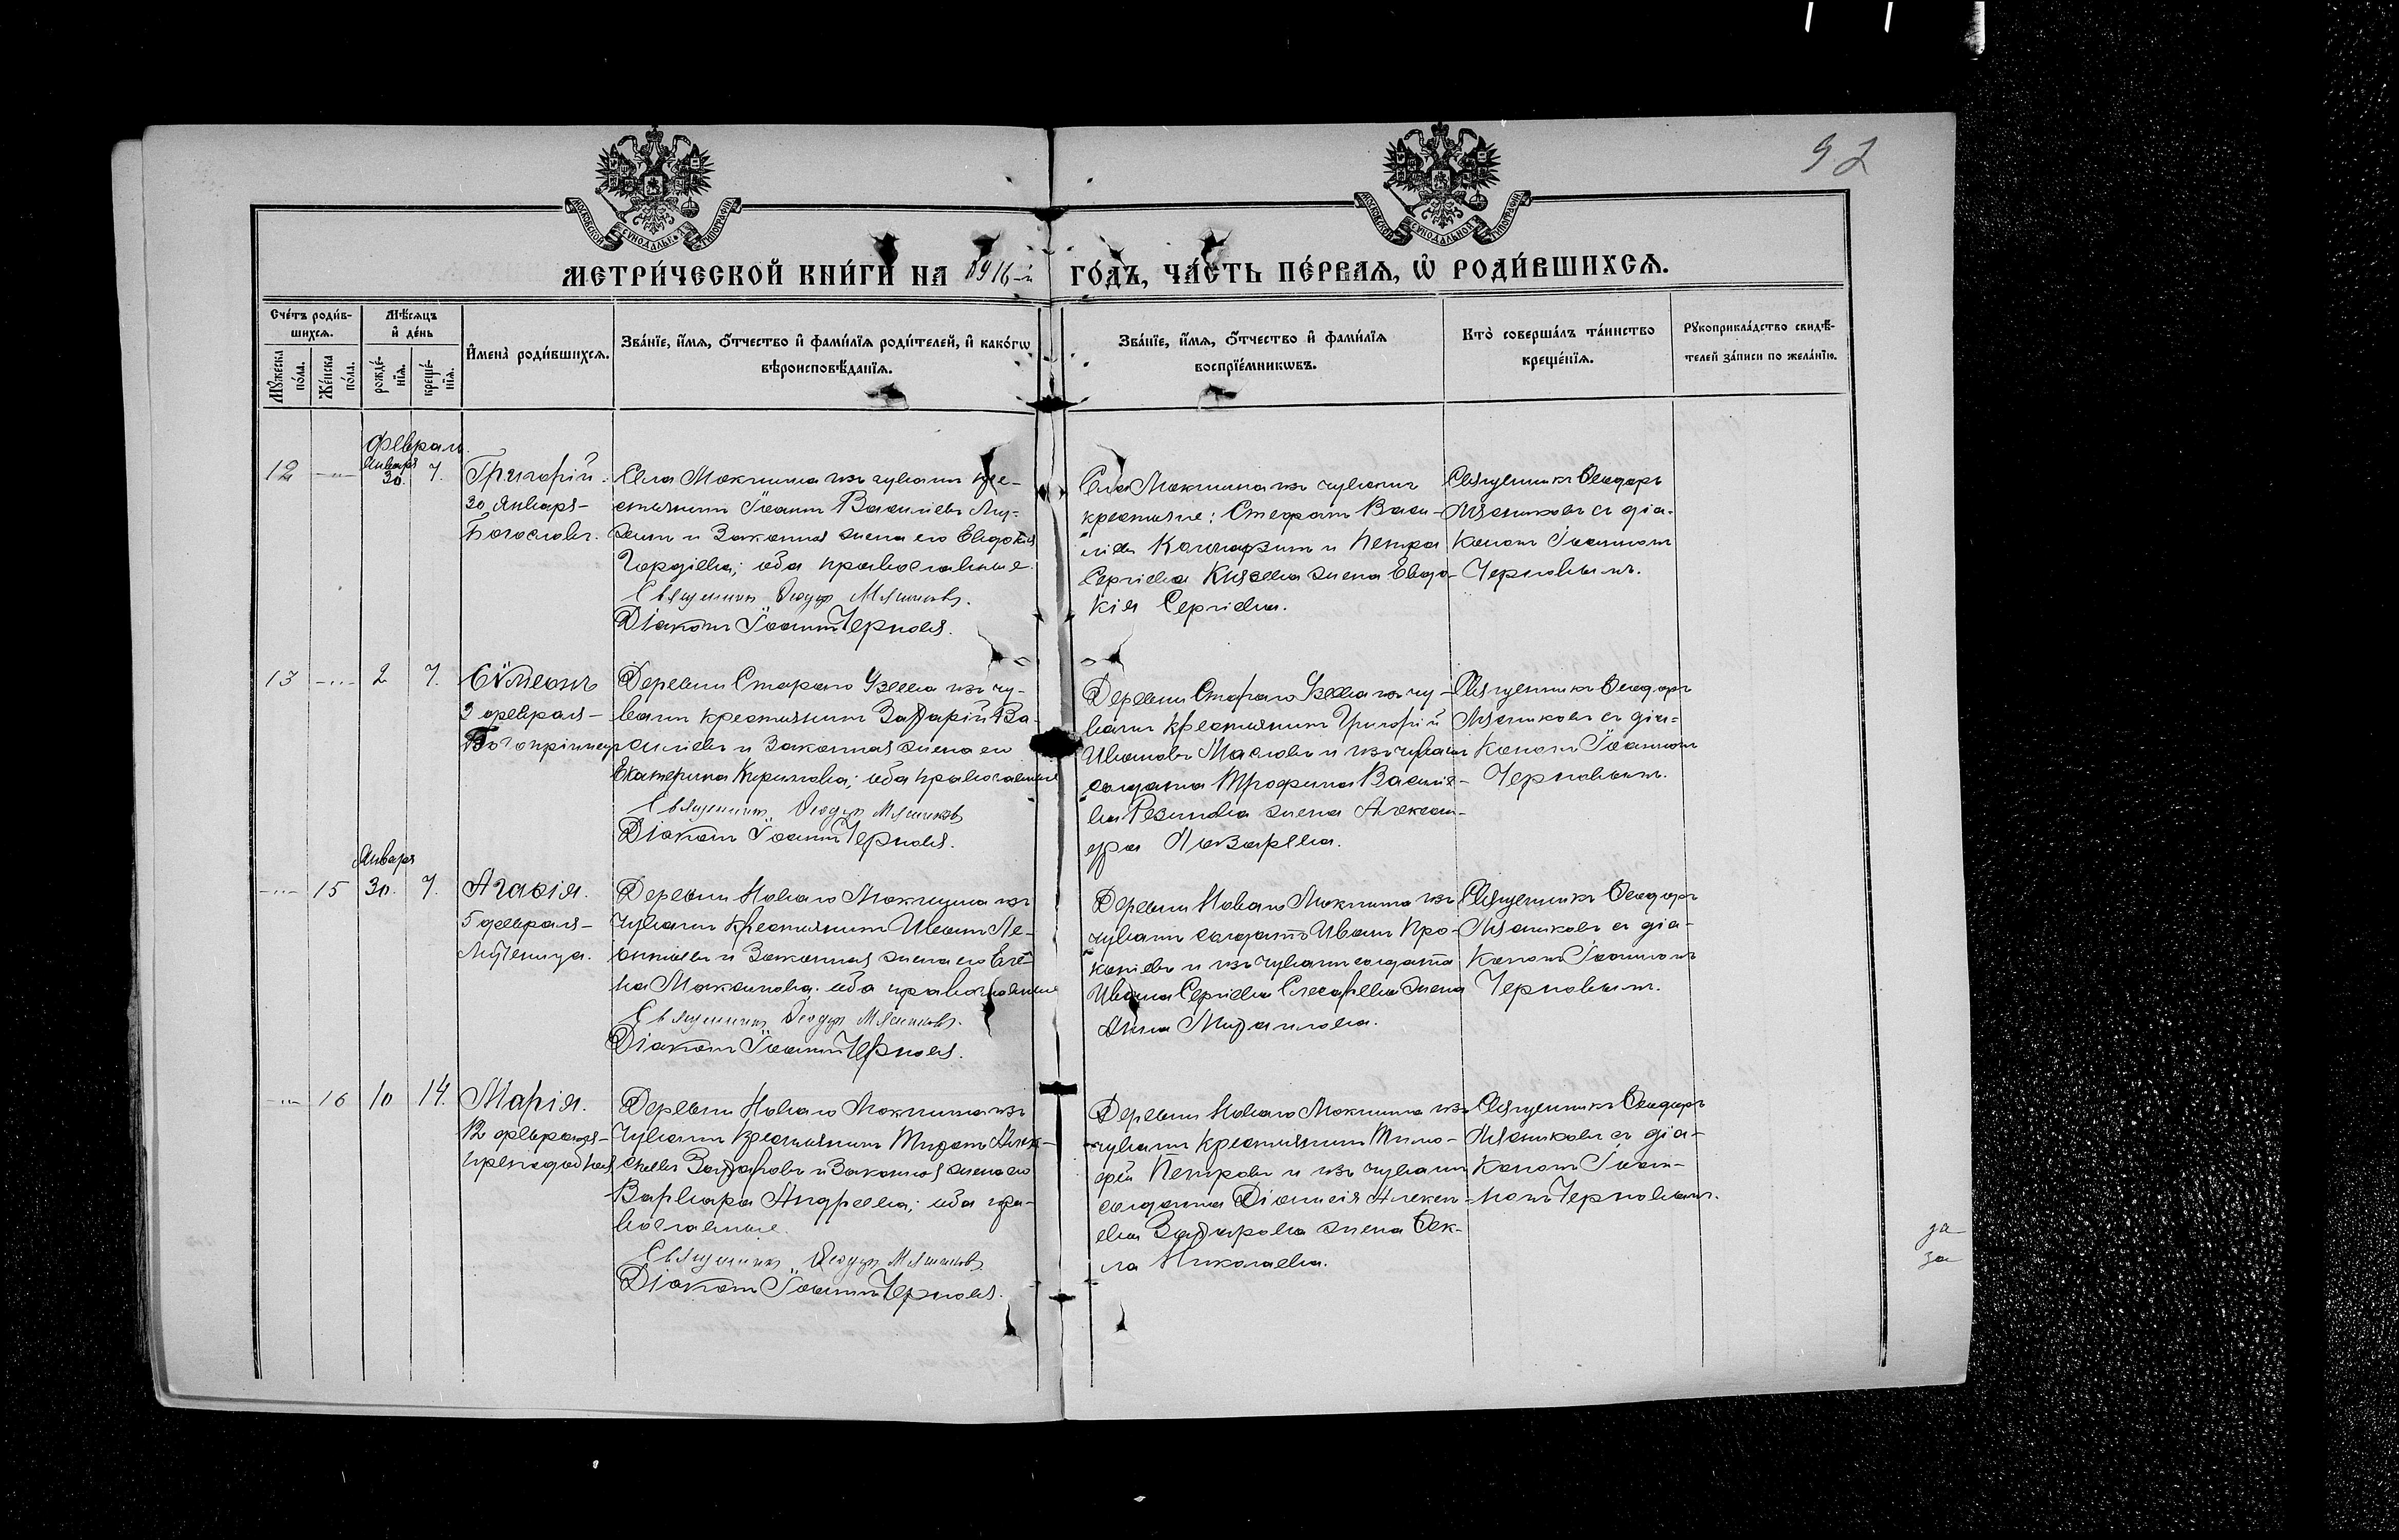 92
МОСКОВСКОЙ СѴНОДАЛЬНОЙ ТИПОГРАФІИ
МОСКОВСКОЙ СѴНОДАЛЬНОЙ ТИПОГРАФІИ
МЕТРИ́ЧЕСКОЙ КНИ́ГИ НА 1916-й ГО́ДЪ, ЧА́СТЬ ПЕ́РВАѦ, Ѽ РОДИ́ВШИХСѦ.
Сче́тъ роди́в-
шихсѧ.
Мꙋ́жеска по́ла.
Же́нска по́ла.
Мѣ́сѧцъ
и҆ де́нь
рожде́-
нїѧ.
креще́-
нїѧ.
И҆мена̀ роди́вшихсѧ.
Зва́нїе, и҆́мѧ, ѻ҆́тчество и҆ фами́лїѧ роди́телей, и҆ како́гѡ
вѣроисповѣ́данїѧ.
Зва́нїе, и҆́мѧ, ѻ҆́тчество и҆ фами́лїѧ
воспрїе́мникѡвъ.
Кто̀ соверша́лъ та́инство
креще́нїѧ.
Рꙋкоприкла́дство свидѣ́-
телей за́писи по жела́нїю.
Февраль.
12 -"- Января 30. 7.
Григорій.
30 Января-
Богословъ.
Села Мокшина изъ чувашъ кре-
стьянинъ Іоаннъ Василіевъ
и законная жена его Евдокія
Гордѣева; оба православные.
Священникъ Ѳеодоръ Мясниковъ.
Діаконъ Іоаннъ Черновъ.
Села Мокшина изъ чувашъ
крестьяне: Стефанъ Васи-
ліевъ и Петра
Сергіева Князева жена Евдо-
кія Сергіева.
Священникъ Ѳеодоръ
Мясниковъ съ діа-
кономъ Іоанномъ
Черновымъ.
13 -"- 2 7.
Сѵмеонъ
3 февраля-
Богопріимецъ
Деревни Стараго Узеева изъ чу-
вашъ крестьянинъ Захарій Ва-
силіевъ и законная жена его
Екатерина Кириллова; оба православные
Священникъ Ѳеодоръ Мясниковъ
Діаконъ Іоаннъ Черновъ.
Деревни Стараго Узеева изъ чу-
вашъ крестьянинъ Григорій
Ивановъ Масловъ и изъ чувашъ
солдата Трофима Василіе-
ва Резинова жена Алексан-
дра Назарьева.
Священникъ Ѳеодоръ
Мясниковъ съ діа-
кономъ Іоанномъ
Черновымъ.
Января
-"- 15 30. 7.
Агаѳія.
5 февраля-
Мученица.
Деревни Новаго Мокшина изъ
чувашъ крестьянинъ Иванъ Ле-
онтіевъ и законная жена его Еле-
на Максимова; оба православные
Священникъ Ѳеодоръ Мясниковъ.
Діаконъ Іоаннъ Черновъ.
Деревни Новаго Мокшина изъ
чувашъ солдатъ Иванъ Про-
копіевъ и изъ чувашъ солдата
Ивана Сергіева Слесарева жена
Анна Михаилова.
Священникъ Ѳеодоръ
Мясниковъ съ діа-
кономъ Іоанномъ
Черновымъ.
-"- 16 10 14.
Марія.
12 февраля-
преподобная
Деревни Новаго Мокшина изъ
чувашъ крестьянинъ Тихонъ Алек-
сѣевъ Захаровъ и законная жена его
Варвара Андреева; оба пра-
вославные.
Священникъ Ѳеодоръ Мясниковъ
Діаконъ Іоаннъ Черновъ.
Деревни Новаго Мокшина изъ
чувашъ крестьянинъ Тимо-
фей Петровъ и изъ чувашъ
солдата Діонисія Алексѣ-
ева Захарова жена Ѳек-
ла Николаева.
Священникъ Ѳеодоръ
Мясниковъ съ діа-
кономъ Іоан-
номъ Черновымъ.
за
за